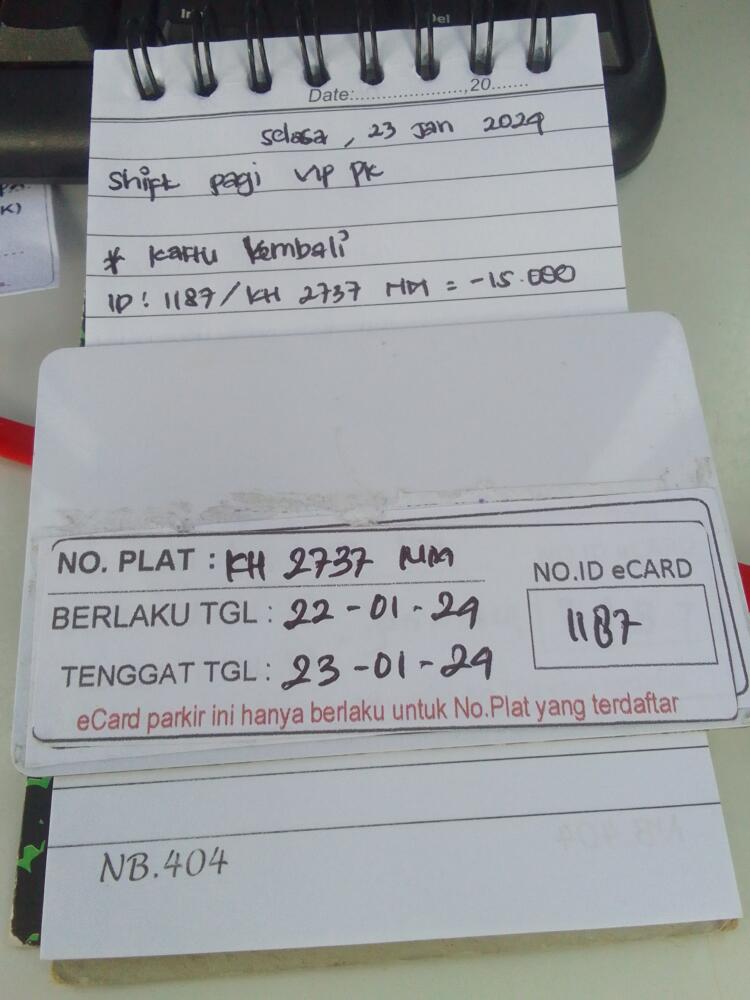 Del
Date:....................,20.......
Selasa, 23 Jan 2024
Shift pagi VIP PK
* Kartu Kembali
ID: 1187/KH 2737 MM = -15.000
K)
NO. PLAT : KH 2737 MM
BERLAKU TGL : 22-01-24
TENGGAT TGL : 23-01-24
NO.ID eCARD
1187
eCard parkir ini hanya berlaku untuk No.Plat yang terdaftar
NB.404